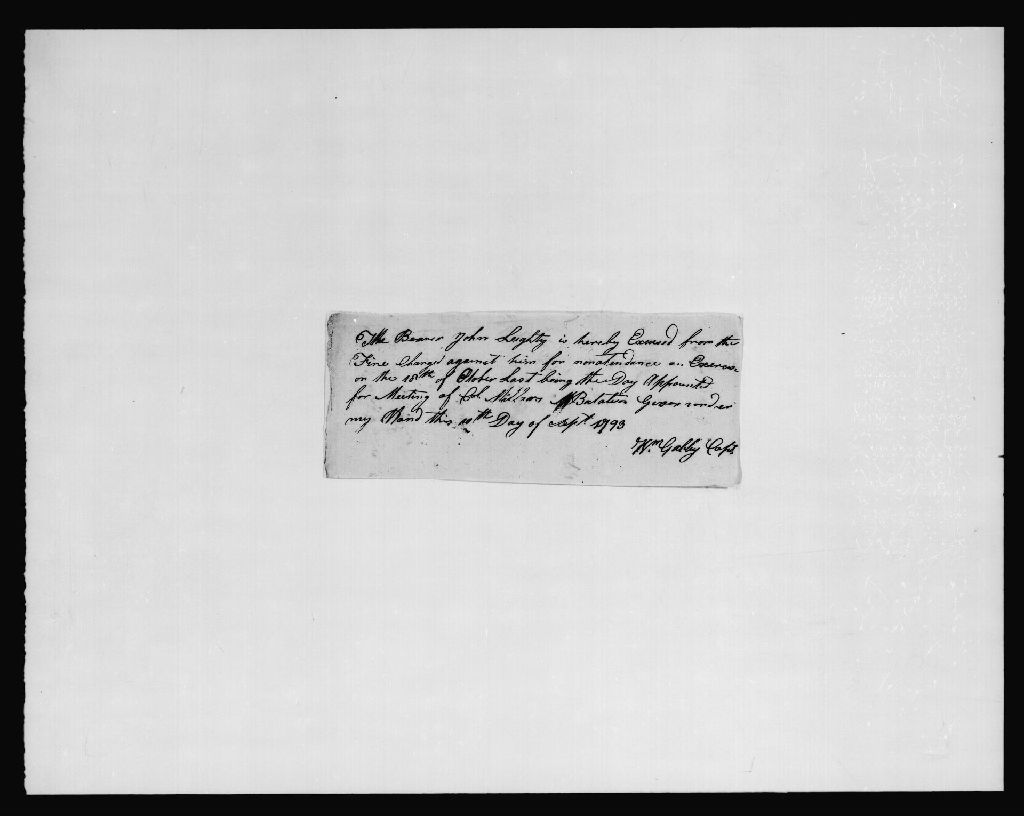 The Bearer John Leighty is hereby Excused from the
Fine Charged against him for nonatendance as Exercise
on the 18th of October Last being the Day Appointd
for Meeting of Col Batalion Given under
my Hand this 10th Day of Sept. 1793
Wm Gabby Capt